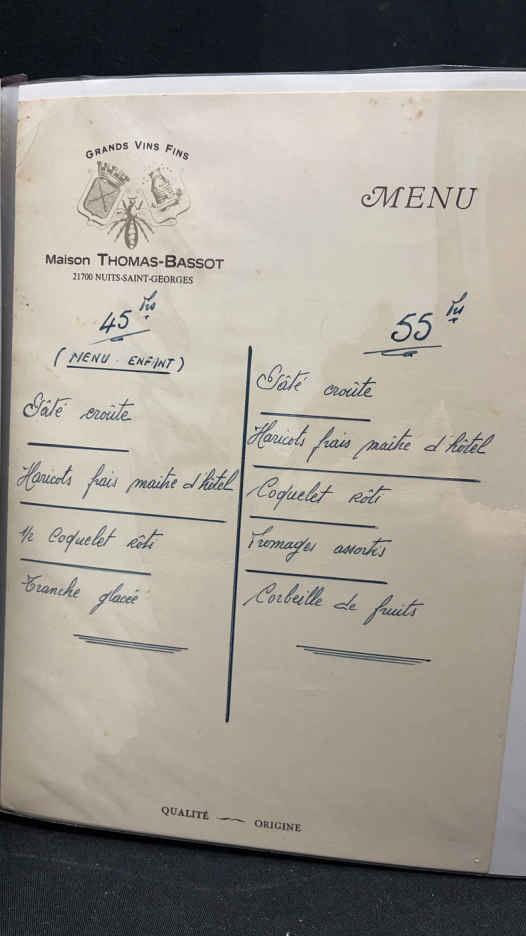 GRANDS VINS FINS
Maison THOMAS-BASSOT
21700 NUITS-SAINT-GEORGES
MENU
45 Frs
(MENU - ENFANT)
Pâté croûte
Haricots frais maitre d'hôtel
1/2 Coquelet rôti
Tranche glacée
55 Frs
Pâté croûte
Haricots frais maitre d'hôtel
Coquelet rôti
Fromages assortis
Corbeille de fruits
QUALITÉ ORIGINE